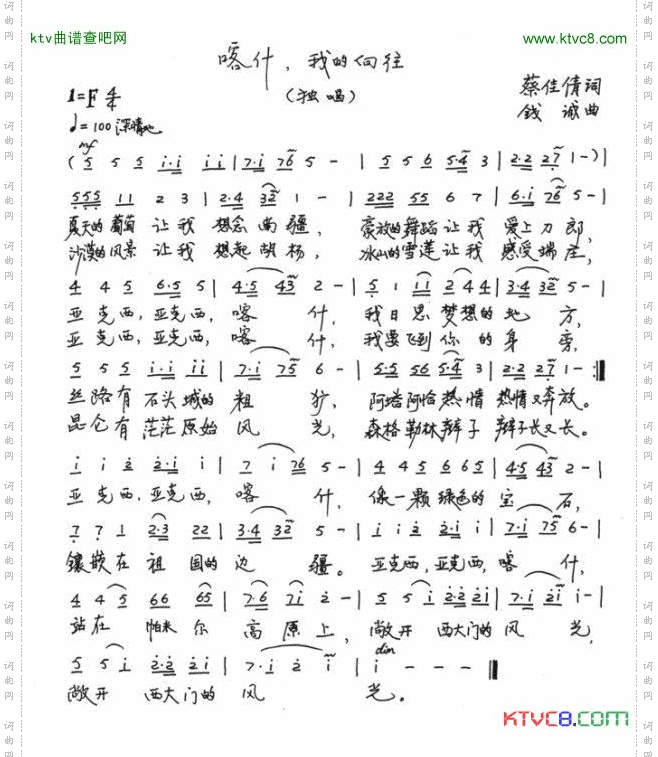 ktv曲谱查吧网
www.ktvc8.com
喀什，我的向往
（独唱）
蔡佳倩词
钱诚曲
1=F 4/4
♩=100 深情地
mf
(5 5 5 i·i i i | 7·i 76 5 - | 5 5 6 5·4 3 | 2·2 27 1 -) |
555 11 2 3 | 2·4 32 1 - | 222 55 6 7 | 6·i 76 5 - |
夏天的葡萄 让我 想念南疆， 豪放的舞蹈让我 爱上刀郎，
沙漠的风景 让我 想起胡杨， 冰山的雪莲让我 感受端庄，
4 4 5 6·5 5 | 4·5 43 2 - | 5 1 11 2 4 4 | 3·4 32 5 - |
亚克西，亚克西， 喀什， 我日思梦想的地方，
亚克西，亚克西， 喀什， 我要飞到你的身旁，
5 5 5 i·i i i | 7·i 75 6 - | 5·5 56 5·4 5 | 2·2 27 1 - :‖
丝路有石头城的粗犷， 阿塔阿恰热情 热情又奔放。
昆仑有茫茫原始风光， 森格勒林辫子 辫子长又长。
i i 2 2·i i | 7 i 76 5 - | 4 4 5 6 6 5 | 4·5 43 2 - |
亚克西，亚克西， 喀什， 像一颗绿色的宝石，
7 7 1 2·3 22 | 3·4 32 5 - | i i 2 2·i i | 7·i 75 6 - |
镶嵌在祖国的边疆。 亚克西，亚克西，喀什，
4 4 5 66 65 | 7·6 7i 2 - | 5 5 i 2·2 2i | 7·i 2i i - |
站在帕米尔高原上， 敞开西大门的风光，
dim
5 5 i 2·2 2i | 7·i 2 i | i - - - ‖
敞开西大门的风光。
KTVC8.COM
词曲网